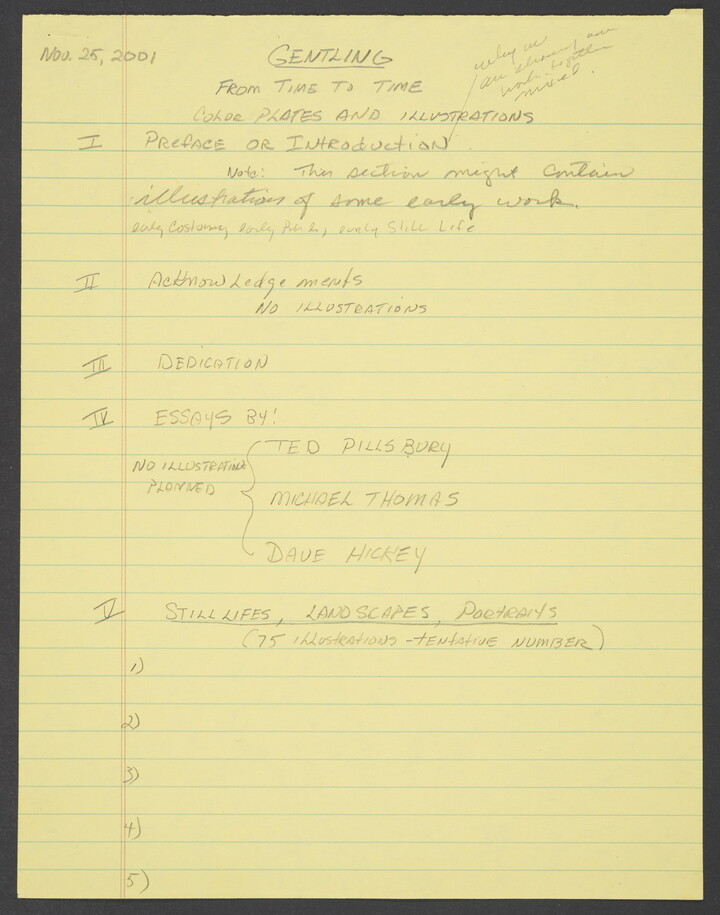 Nov. 25, 2001
GENTLING
FROM TIME TO TIME
COLOR PLATES AND ILLUSTRATIONS
why we
are
work together
mixed.
I PREFACE OR INTRODUCTION
Note: This section might contain
illustrations of some early work.
early Costumes, early, early Still Life
II Acknowledgements
NO ILLUSTRATIONS
III DEDICATION
IV ESSAYS BY:
TED PILLSBURY
NO ILLUSTRATIONS
PLANNED
MICHAEL THOMAS
DAVE HICKEY
V STILL LIFES, LANDSCAPES, PORTRAITS
(75 ILLUSTRATIONS - TENTATIVE NUMBER)
1)
2)
3)
4)
5)